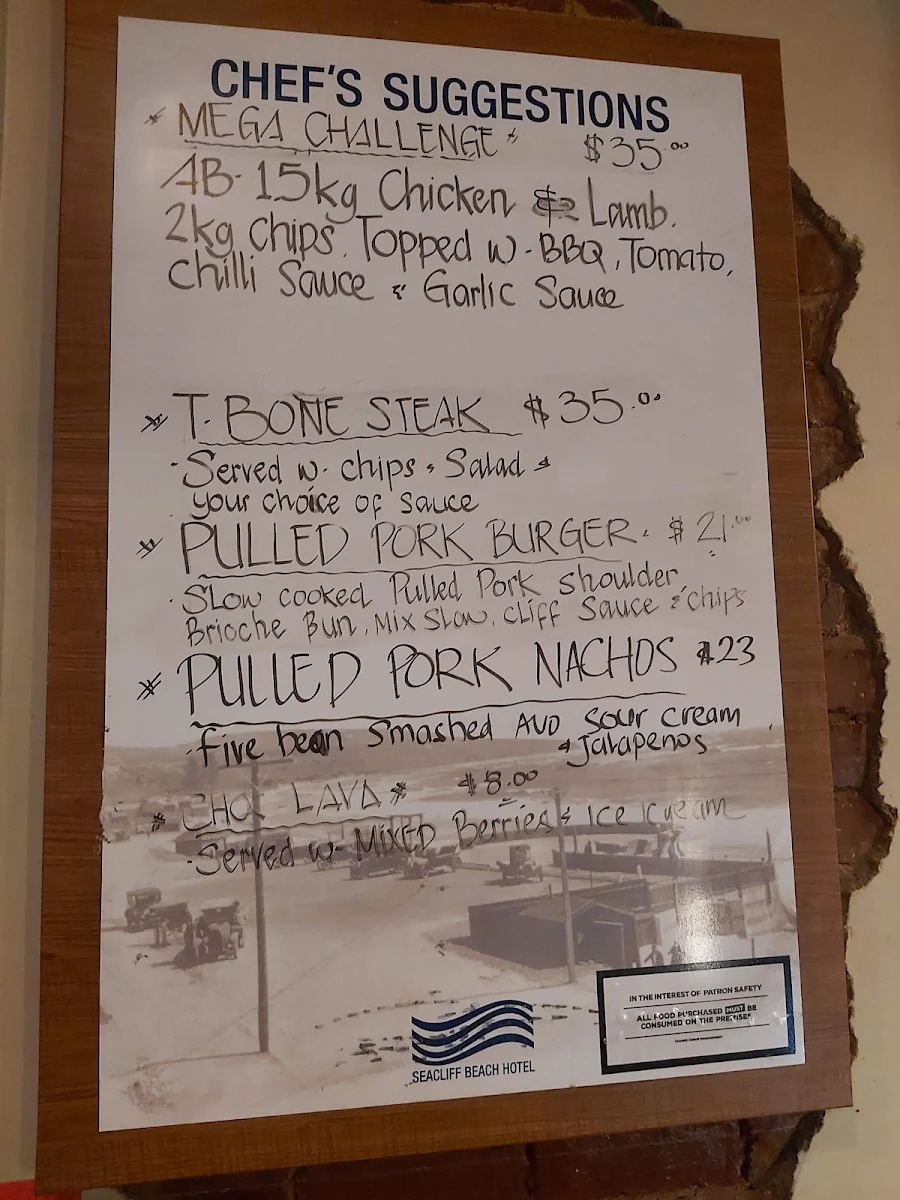 CHEF'S SUGGESTIONS
MEGA CHALLENGE $35.00
AB- 1.5kg Chicken & Lamb.
2kg chips. Topped w- BBQ, Tomato,
Chilli Sauce & Garlic Sauce
T-BONE STEAK $35.00
- Served w- chips & Salad &
your choice of sauce
PULLED PORK BURGER. $21.00
- Slow cooked Pulled Pork shoulder,
Brioche Bun, Mix Slaw, Cliff Sauce & chips
PULLED PORK NACHOS $23
- five bean Smashed AVO Sour cream
& Jalapenos
CHOC LAVA $8.00
- Served w- MIXED Berries & Ice Cream
IN THE INTEREST OF PATRON SAFETY
ALL FOOD PURCHASED MUST BE
CONSUMED ON THE PREMISES
SEACLIFF BEACH HOTEL